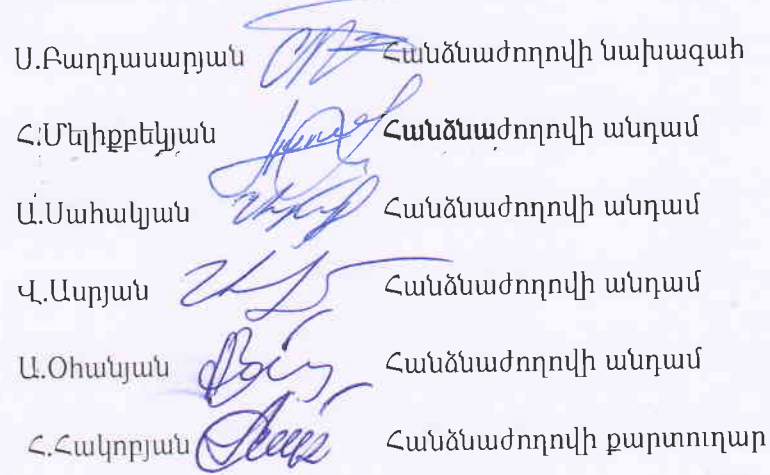 Ս.Բաղդասարյան Հանձնաժողովի նախագահ
Հ.Մելիքբեկյան Հանձնաժողովի անդամ
Ա.Սահակյան Հանձնաժողովի անդամ
Վ.Ասրյան Հանձնաժողովի անդամ
Ա.Օհանյան Հանձնաժողովի անդամ
Հ.Հակոբյան Հանձնաժողովի քարտուղար